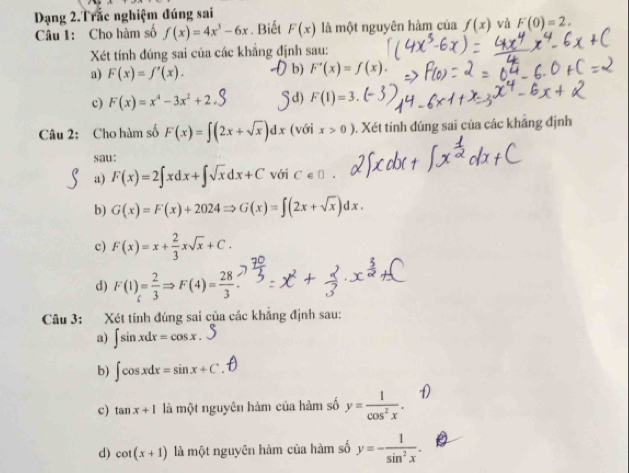 Dạng 2. Trắc nghiệm đúng sai
Câu 1: Cho hàm số f(x) = 4x³ − 6x. Biết F(x) là một nguyên hàm của f(x) và F(0) = 2.
Xét tính đúng sai của các khẳng định sau: ∫(4x³-6x) = 4x⁴/4 x⁴ - 6x + C
a) F(x) = f'(x). Đ b) F'(x) = f(x). => F(0) = 2 = 0⁴ - 6.0 + C = 2
c) F(x) = x⁴ − 3x² + 2. S S d) F(1) = 3. (-3) 1⁴ - 6x1 + x⁴ - 6x + 2
Câu 2: Cho hàm số F(x) = ∫(2x + √x)dx (với x > 0). Xét tính đúng sai của các khẳng định
sau:
S a) F(x) = 2∫xdx + ∫√xdx + C với C ∈ □. 2∫xdx + ∫x^(1/2)dx + C
b) G(x) = F(x) + 2024 ⇒ G(x) = ∫(2x + √x)dx.
c) F(x) = x + 2/3 x√x + C.
d) F(1) = 2/3 ⇒ F(4) = 28/3. 70/3 = x² + 2/3 . x^(3/2) + C
Câu 3: Xét tính đúng sai của các khẳng định sau:
a) ∫sin xdx = cos x. S
b) ∫cos xdx = sin x + C. Đ
c) tan x + 1 là một nguyên hàm của hàm số y = 1/cos² x. Đ
d) cot(x + 1) là một nguyên hàm của hàm số y = −1/sin² x.